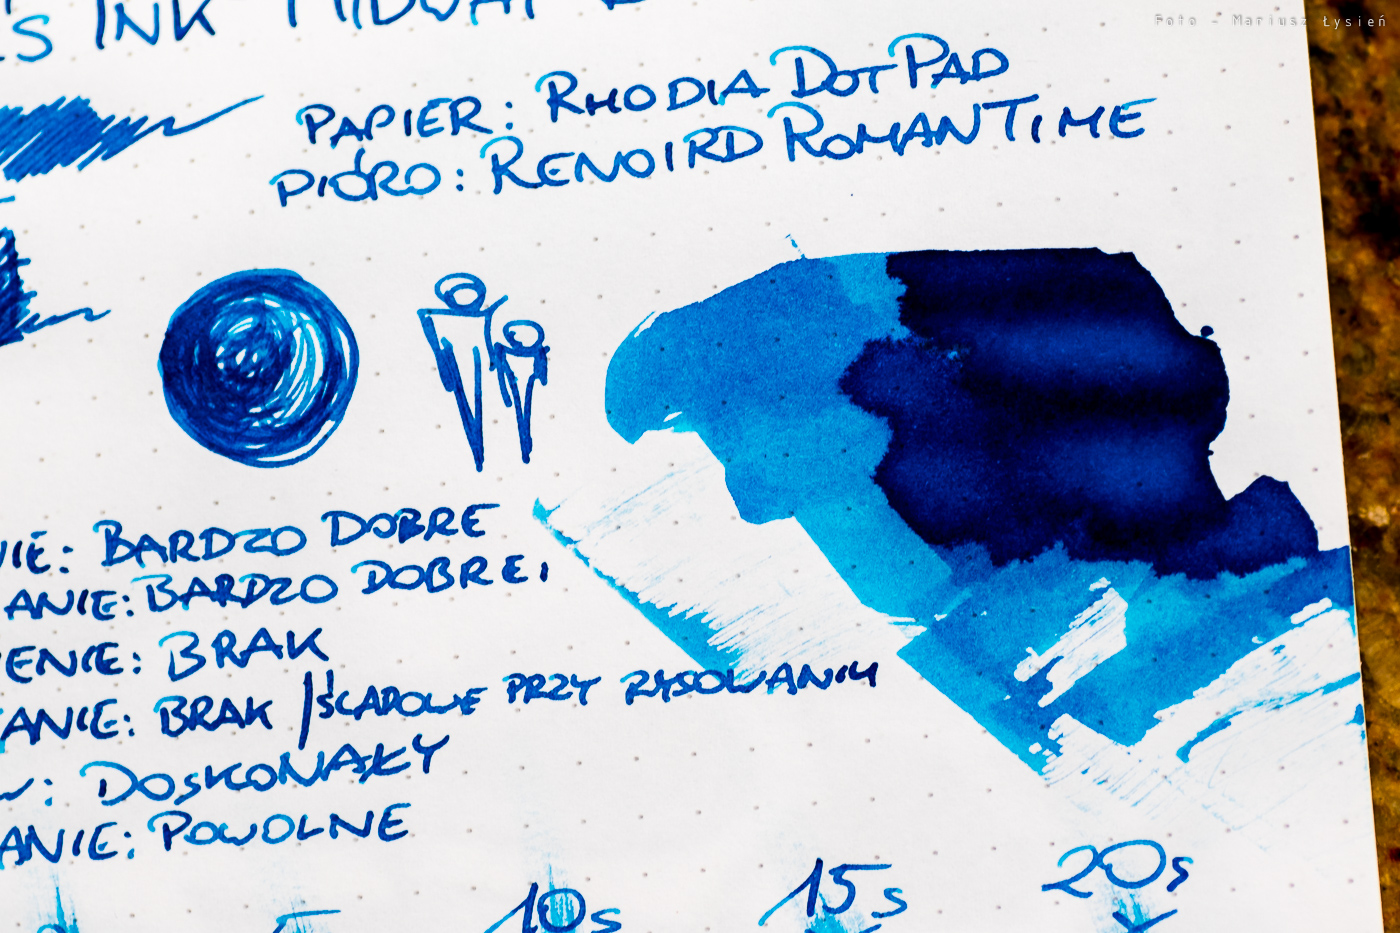 Foto - Mariusz Łysień
S INK MIDWAY
PAPIER: RHODIA DOTPAD
PIÓRO: RENOIRD ROMANTIME
NIE: BARDZO DOBRE
ANIE: BARDZO DOBRE,
IENIE: BRAK
ANIE: BRAK / PRZY RYSOWANIU
W: DOSKONAŁY
ANIE: POWOLNE
10s
15s
20s